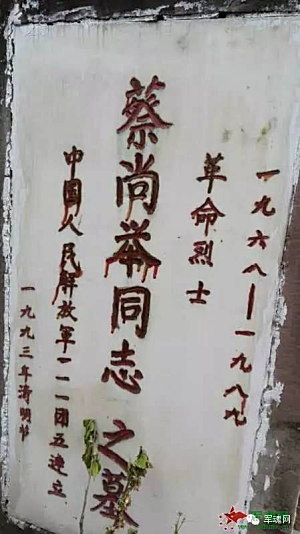 一九六八—一九八九
革命烈士
蔡尚举同志之墓
中国人民解放军一一一团五连立
一九九三年清明节
军魂网